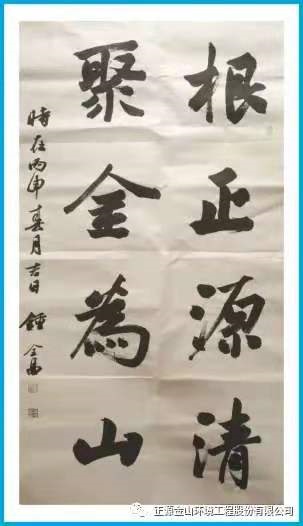 根正源清
聚金為山
時在丙申春月吉日
正源金山环境工程股份有限公司